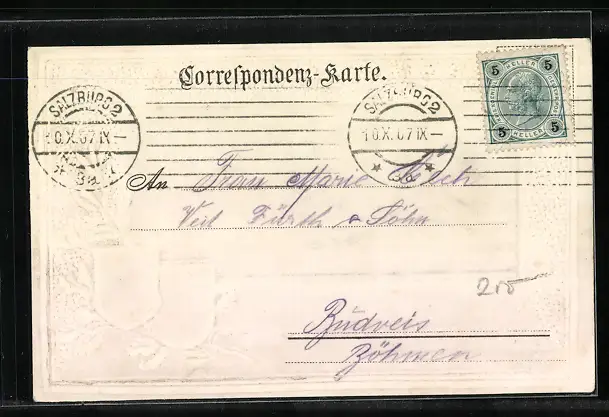 Correspondenz-Karte.
5 HELLER 5
5 HELLER 5
SALZBURG 2
10.X.07 IX–
* 9a *
SALZBURG 2
10.X.07 IX–
* 9a *
An Frau Marie
Veit Fürth & Söhn
215
Budweis
Böhmen